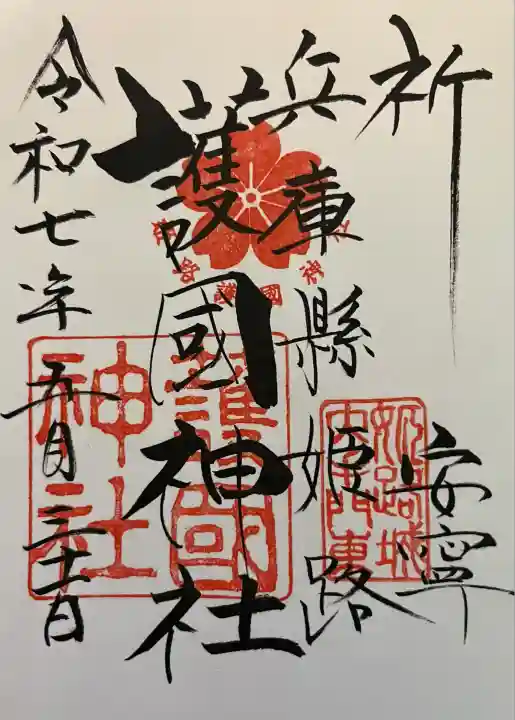 祈 安寧
兵庫縣姫路
護國神社
令和七年五月三十一日
護國
神社
姫路城